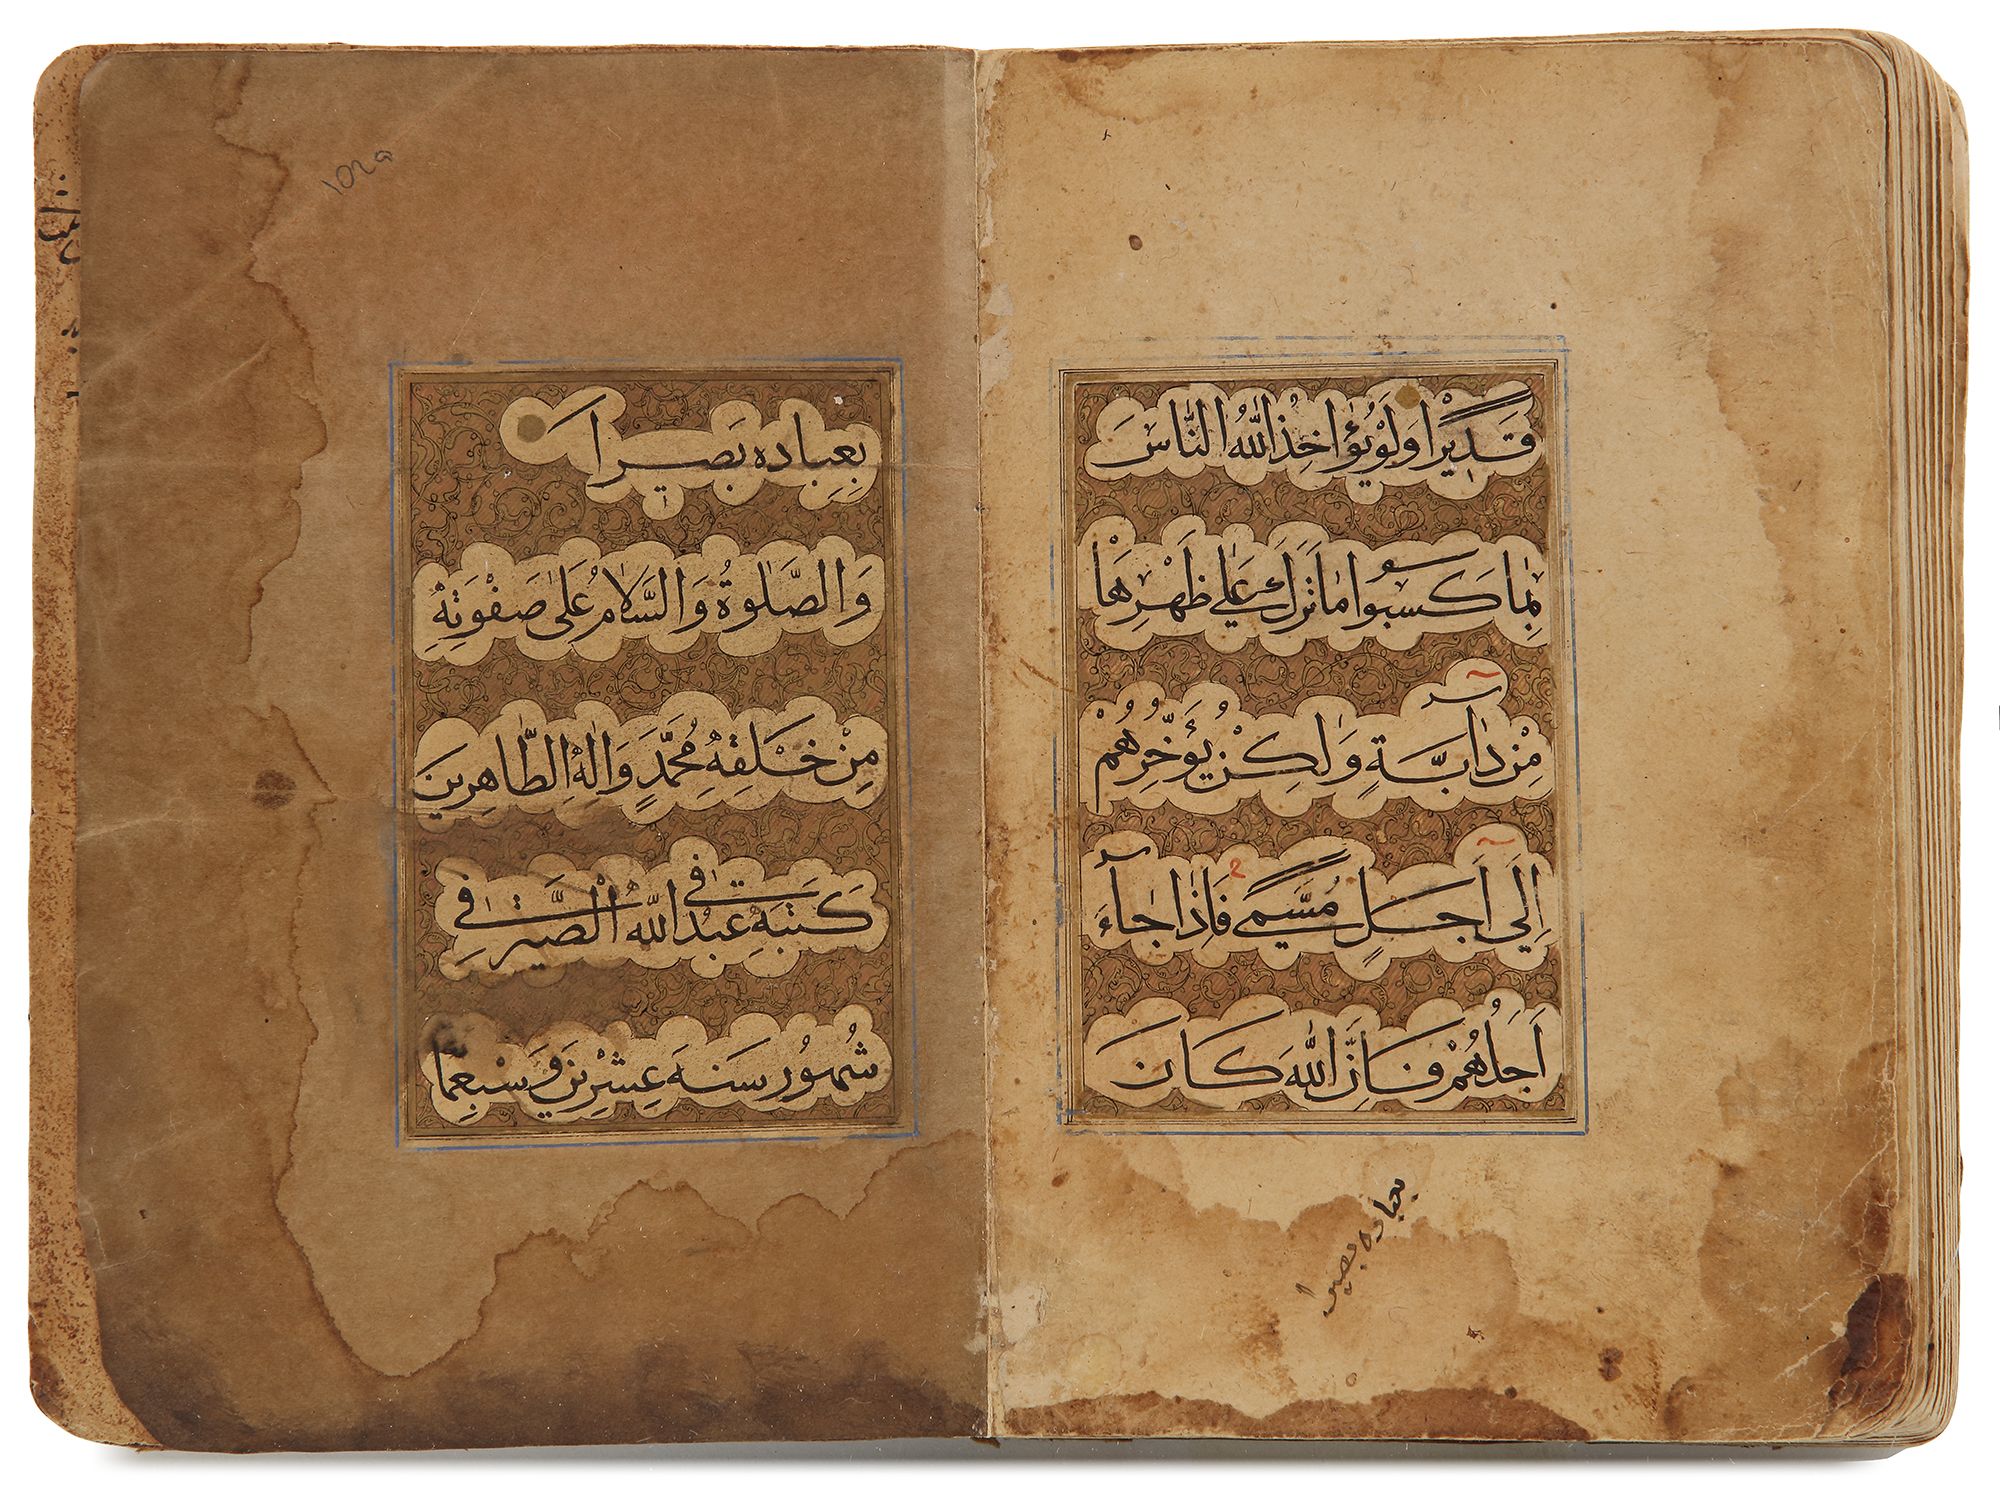 قَدِيْرًا وَلَوْ يُؤَاخِذُ اللّٰهُ النَّاسَ
بِمَا كَسَبُوا مَا تَرَكَ عَلٰى ظَهْرِهَا
مِنْ دَآبَّةٍ وَلٰكِنْ يُؤَخِّرُهُمْ
اِلٰٓى اَجَلٍ مُسَمًّى فَاِذَا جَآءَ
اَجَلُهُمْ فَاِنَّ اللّٰهَ كَانَ
بعباده بصيرا
بِعِبَادِه بَصِيرًا
وَالصَّلٰوةُ وَالسَّلَامُ عَلٰى صَفْوَتِهِ
مِنْ خَلْقِهِ مُحَمَّدٍ وَاٰلِهِ الطَّاهِرِينَ
كَتَبَهُ عَبْدُ اللّٰهِ الصَّيْرَفِي فِي
شُهُورِ سَنَةَ عِشْرِينَ وَسَبْعِمَا